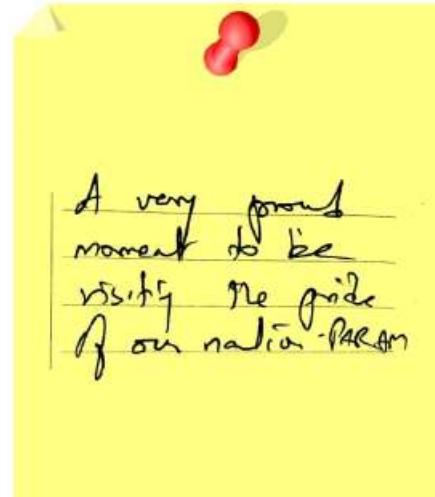 A very proud
moment to be
visiting the pride
of our nation - PARAM